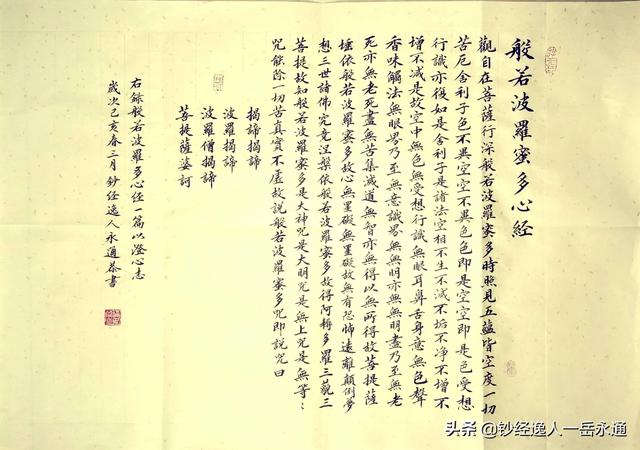 般若波羅蜜多心経
觀自在菩薩行深般若波羅蜜多時照見五蘊皆空度一切
苦厄舍利子色不異空空不異色色即是空空即是色受想
行識亦復如是舍利子是諸法空相不生不滅不垢不净不增不
增不减是故空中無色無受想行識無眼耳鼻舌身意無色聲
香味觸法無眼界乃至無意識界無無明亦無無明盡乃至無老
死亦無老死盡無苦集滅道無智亦無得以無所得故菩提薩
埵依般若波羅蜜多故心無罣礙無罣礙故無有恐怖遠離顛倒夢
想三世諸佛究竟涅槃依般若波羅蜜多故得阿耨多羅三藐三
菩提故知般若波羅蜜多是大神咒是大明咒是無上咒是無等〻
咒能除一切苦真實不虛故説般若波羅蜜多咒即説咒曰
揭諦揭諦
波羅揭諦
波羅僧揭諦
菩提薩婆訶
右録般若波羅多心经一篇以澄心志
歲次己亥春三月鈔经逸人永通恭書
头条 @钞经逸人一岳永通